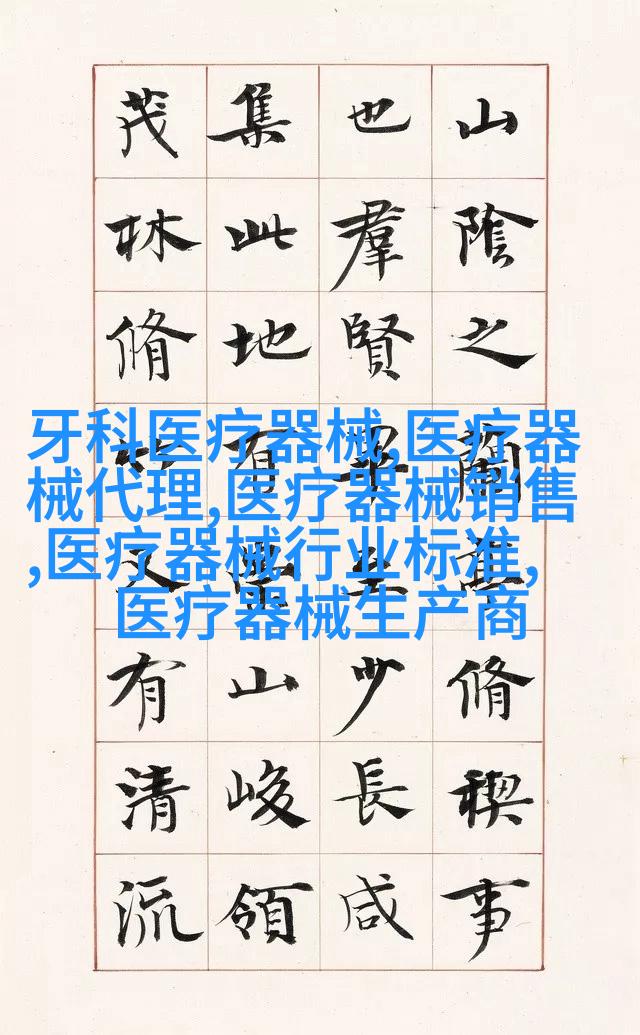 山陰之蘭亭脩稧事
也羣賢畢至少長咸
集此地有崇山峻領
茂林脩竹又有清流
牙科医疗器械,医疗器
械代理,医疗器械销售
,医疗器械行业标准,
医疗器械生产商